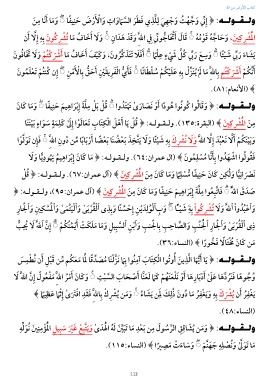 كتاب الأرض من الله
ولــقــولــه: ﴿ إِنِّي وَجَّهْتُ وَجْهِيَ لِلَّذِي فَطَرَ السَّمَاوَاتِ وَالْأَرْضَ حَنِيفًا ۖ وَمَا أَنَا مِنَ
الْمُشْرِكِينَ، وَحَاجَّهُ قَوْمُهُ ۚ قَالَ أَتُحَاجُّونِّي فِي اللَّهِ وَقَدْ هَدَانِ ۚ وَلَا أَخَافُ مَا تُشْرِكُونَ بِهِ إِلَّا أَن
يَشَاءَ رَبِّي شَيْئًا ۗ وَسِعَ رَبِّي كُلَّ شَيْءٍ عِلْمًا ۗ أَفَلَا تَتَذَكَّرُونَ، وَكَيْفَ أَخَافُ مَا أَشْرَكْتُمْ وَلَا تَخَافُونَ
أَنَّكُمْ أَشْرَكْتُم بِاللَّهِ مَا لَمْ يُنَزِّلْ بِهِ عَلَيْكُمْ سُلْطَانًا ۚ فَأَيُّ الْفَرِيقَيْنِ أَحَقُّ بِالْأَمْنِ ۖ إِن كُنتُمْ تَعْلَمُونَ
﴾ (الأنعام: ٨١).
ولــقــولــه: ﴿ وَقَالُوا كُونُوا هُودًا أَوْ نَصَارَىٰ تَهْتَدُوا ۗ قُلْ بَلْ مِلَّةَ إِبْرَاهِيمَ حَنِيفًا ۖ وَمَا كَانَ
مِنَ الْمُشْرِكِينَ ﴾ (البقرة: ١٣٥). ولــقــولــه: ﴿ قُلْ يَا أَهْلَ الْكِتَابِ تَعَالَوْا إِلَىٰ كَلِمَةٍ سَوَاءٍ بَيْنَنَا
وَبَيْنَكُمْ أَلَّا نَعْبُدَ إِلَّا اللَّهَ وَلَا نُشْرِكَ بِهِ شَيْئًا وَلَا يَتَّخِذَ بَعْضُنَا بَعْضًا أَرْبَابًا مِّن دُونِ اللَّهِ ۚ فَإِن تَوَلَّوْا
فَقُولُوا اشْهَدُوا بِأَنَّا مُسْلِمُونَ ﴾ (آل عمران: ٦٤). ولــقــولــه: ﴿ مَا كَانَ إِبْرَاهِيمُ يَهُودِيًّا وَلَا
نَصْرَانِيًّا وَلَٰكِن كَانَ حَنِيفًا مُّسْلِمًا وَمَا كَانَ مِنَ الْمُشْرِكِينَ ﴾ (آل عمران: ٦٧). ولــقــولــه: ﴿ قُلْ
صَدَقَ اللَّهُ ۗ فَاتَّبِعُوا مِلَّةَ إِبْرَاهِيمَ حَنِيفًا وَمَا كَانَ مِنَ الْمُشْرِكِينَ ﴾ (آل عمران: ٩٥). ولــقــولــه: ﴿
وَاعْبُدُوا اللَّهَ وَلَا تُشْرِكُوا بِهِ شَيْئًا ۖ وَبِالْوَالِدَيْنِ إِحْسَانًا وَبِذِي الْقُرْبَىٰ وَالْيَتَامَىٰ وَالْمَسَاكِينِ وَالْجَارِ
ذِي الْقُرْبَىٰ وَالْجَارِ الْجُنُبِ وَالصَّاحِبِ بِالْجَنبِ وَابْنِ السَّبِيلِ وَمَا مَلَكَتْ أَيْمَانُكُمْ ۗ إِنَّ اللَّهَ لَا يُحِبُّ
مَن كَانَ مُخْتَالًا فَخُورًا ﴾ (النساء: ٣٦).
ولــقــولــه: ﴿ يَا أَيُّهَا الَّذِينَ أُوتُوا الْكِتَابَ آمِنُوا بِمَا نَزَّلْنَا مُصَدِّقًا لِّمَا مَعَكُم مِّن قَبْلِ أَن نَّطْمِسَ
وُجُوهًا فَنَرُدَّهَا عَلَىٰ أَدْبَارِهَا أَوْ نَلْعَنَهُمْ كَمَا لَعَنَّا أَصْحَابَ السَّبْتِ ۚ وَكَانَ أَمْرُ اللَّهِ مَفْعُولًا إِنَّ اللَّهَ لَا
يَغْفِرُ أَن يُشْرَكَ بِهِ وَيَغْفِرُ مَا دُونَ ذَٰلِكَ لِمَن يَشَاءُ ۚ وَمَن يُشْرِكْ بِاللَّهِ فَقَدِ افْتَرَىٰ إِثْمًا عَظِيمًا ﴾
(النساء: ٤٨).
ولــقــولــه: ﴿ وَمَن يُشَاقِقِ الرَّسُولَ مِن بَعْدِ مَا تَبَيَّنَ لَهُ الْهُدَىٰ وَيَتَّبِعْ غَيْرَ سَبِيلِ الْمُؤْمِنِينَ نُوَلِّهِ
مَا تَوَلَّىٰ وَنُصْلِهِ جَهَنَّمَ ۖ وَسَاءَتْ مَصِيرًا ﴾ (النساء: ١١٥).